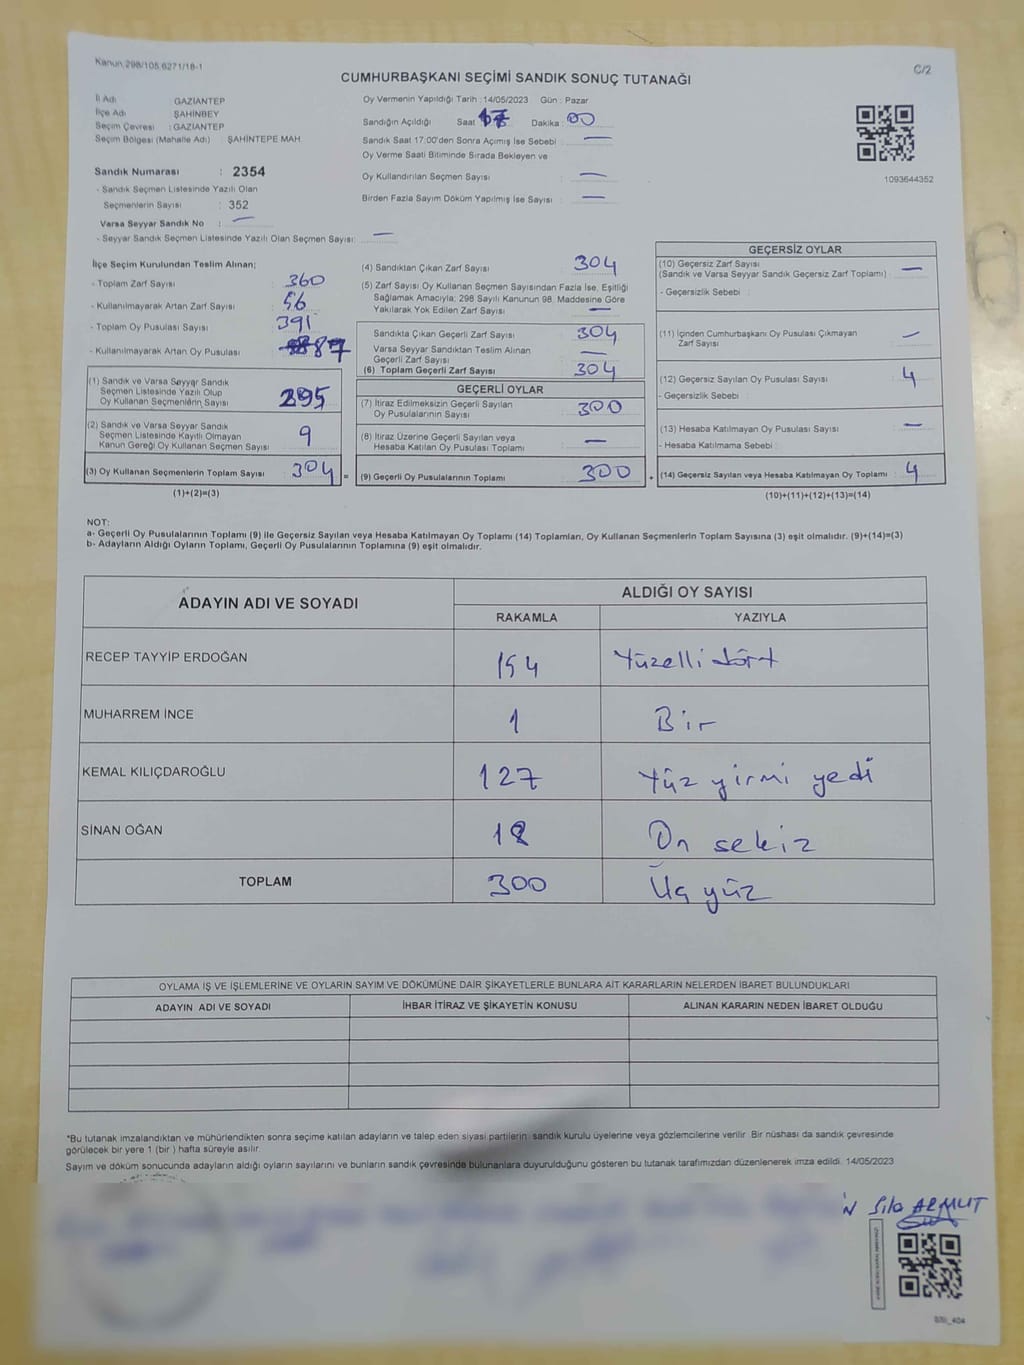 Kanun:298/105,6271/18-1
C/2
CUMHURBAŞKANI SEÇİMİ SANDIK SONUÇ TUTANAĞI
İl Adı : GAZİANTEP
İlçe Adı : ŞAHİNBEY
Seçim Çevresi : GAZİANTEP
Seçim Bölgesi (Mahalle Adı) : ŞAHİNTEPE MAH
Sandık Numarası : 2354
- Sandık Seçmen Listesinde Yazılı Olan
Seçmenlerin Sayısı : 352
Varsa Seyyar Sandık No : —
- Seyyar Sandık Seçmen Listesinde Yazılı Olan Seçmen Sayısı: —
Oy Vermenin Yapıldığı Tarih :14/05/2023 Gün : Pazar
Sandığın Açıldığı Saat 17 Dakika : 00
Sandık Saat 17:00'den Sonra Açımış İse Sebebi : —
Oy Verme Saati Bitiminde Sırada Bekleyen ve
Oy Kullandırılan Seçmen Sayısı —
Birden Fazla Sayım Döküm Yapılmış İse Sayısı : —
1093644352
İlçe Seçim Kurulundan Teslim Alınan;
- Toplam Zarf Sayısı : 360
- Kullanılmayarak Artan Zarf Sayısı : 56
- Toplam Oy Pusulası Sayısı : 391
- Kullanılmayarak Artan Oy Pusulası 87
(1) Sandık ve Varsa Seyyar Sandık
Seçmen Listesinde Yazılı Olup
Oy Kullanan Seçmenlerin Sayısı : 295
(2) Sandık ve Varsa Seyyar Sandık
Seçmen Listesinde Kayıtlı Olmayan
Kanun Gereği Oy Kullanan Seçmen Sayısı : 9
(3) Oy Kullanan Seçmenlerin Toplam Sayısı : 304 =
(1)+(2)=(3)
(4) Sandıktan Çıkan Zarf Sayısı 304
(5) Zarf Sayısı Oy Kullanan Seçmen Sayısından Fazla İse, Eşitliği
Sağlamak Amacıyla; 298 Sayılı Kanunun 98. Maddesine Göre
Yakılarak Yok Edilen Zarf Sayısı : —
Sandıkta Çıkan Geçerli Zarf Sayısı : 304
Varsa Seyyar Sandıktan Teslim Alınan
Geçerli Zarf Sayısı —
(6) Toplam Geçerli Zarf Sayısı : 304
GEÇERLİ OYLAR
(7) İtiraz Edilmeksizin Geçerli Sayılan
Oy Pusulalarının Sayısı : 300
(8) İtiraz Üzerine Geçerli Sayılan veya
Hesaba Katılan Oy Pusulası Toplamı : —
(9) Geçerli Oy Pusulalarının Toplamı : 300 +
GEÇERSİZ OYLAR
(10) Geçersiz Zarf Sayısı
(Sandık ve Varsa Seyyar Sandık Geçersiz Zarf Toplamı) : —
- Geçersizlik Sebebi :
(11) İçinden Cumhurbaşkanı Oy Pusulası Çıkmayan
Zarf Sayısı : —
(12) Geçersiz Sayılan Oy Pusulası Sayısı : 4
- Geçersizlik Sebebi :
(13) Hesaba Katılmayan Oy Pusulası Sayısı : —
- Hesaba Katılmama Sebebi :
(14) Geçersiz Sayılan veya Hesaba Katılmayan Oy Toplamı : 4
(10)+(11)+(12)+(13)=(14)
NOT:
a- Geçerli Oy Pusulalarının Toplamı (9) ile Geçersiz Sayılan veya Hesaba Katılmayan Oy Toplamı (14) Toplamları, Oy Kullanan Seçmenlerin Toplam Sayısına (3) eşit olmalıdır. (9)+(14)=(3)
b- Adayların Aldığı Oyların Toplamı, Geçerli Oy Pusulalarının Toplamına (9) eşit olmalıdır.
ADAYIN ADI VE SOYADI
ALDIĞI OY SAYISI
RAKAMLA YAZIYLA
RECEP TAYYİP ERDOĞAN 154 Yüzelli dört
MUHARREM İNCE 1 Bir
KEMAL KILIÇDAROĞLU 127 Yüz yirmi yedi
SİNAN OĞAN 18 On sekiz
TOPLAM 300 Üç yüz
OYLAMA İŞ VE İŞLEMLERİNE VE OYLARIN SAYIM VE DÖKÜMÜNE DAİR ŞİKAYETLERLE BUNLARA AİT KARARLARIN NELERDEN İBARET BULUNDUKLARI
ADAYIN ADI VE SOYADI İHBAR İTİRAZ VE ŞİKAYETİN KONUSU ALINAN KARARIN NEDEN İBARET OLDUĞU
*Bu tutanak imzalandıktan ve mühürlendikten sonra seçime katılan adayların ve talep eden siyasi partilerin sandık kurulu üyelerine veya gözlemcilerine verilir .Bir nüshası da sandık çevresinde
görülecek bir yere 1 (bir ) hafta süreyle asılır.
Sayım ve döküm sonucunda adayların aldığı oyların sayılarını ve bunların sandık çevresinde bulunanlara duyurulduğunu gösteren bu tutanak tarafımızdan düzenlenerek imza edildi. 14/05/2023
N Sıla ARMUT